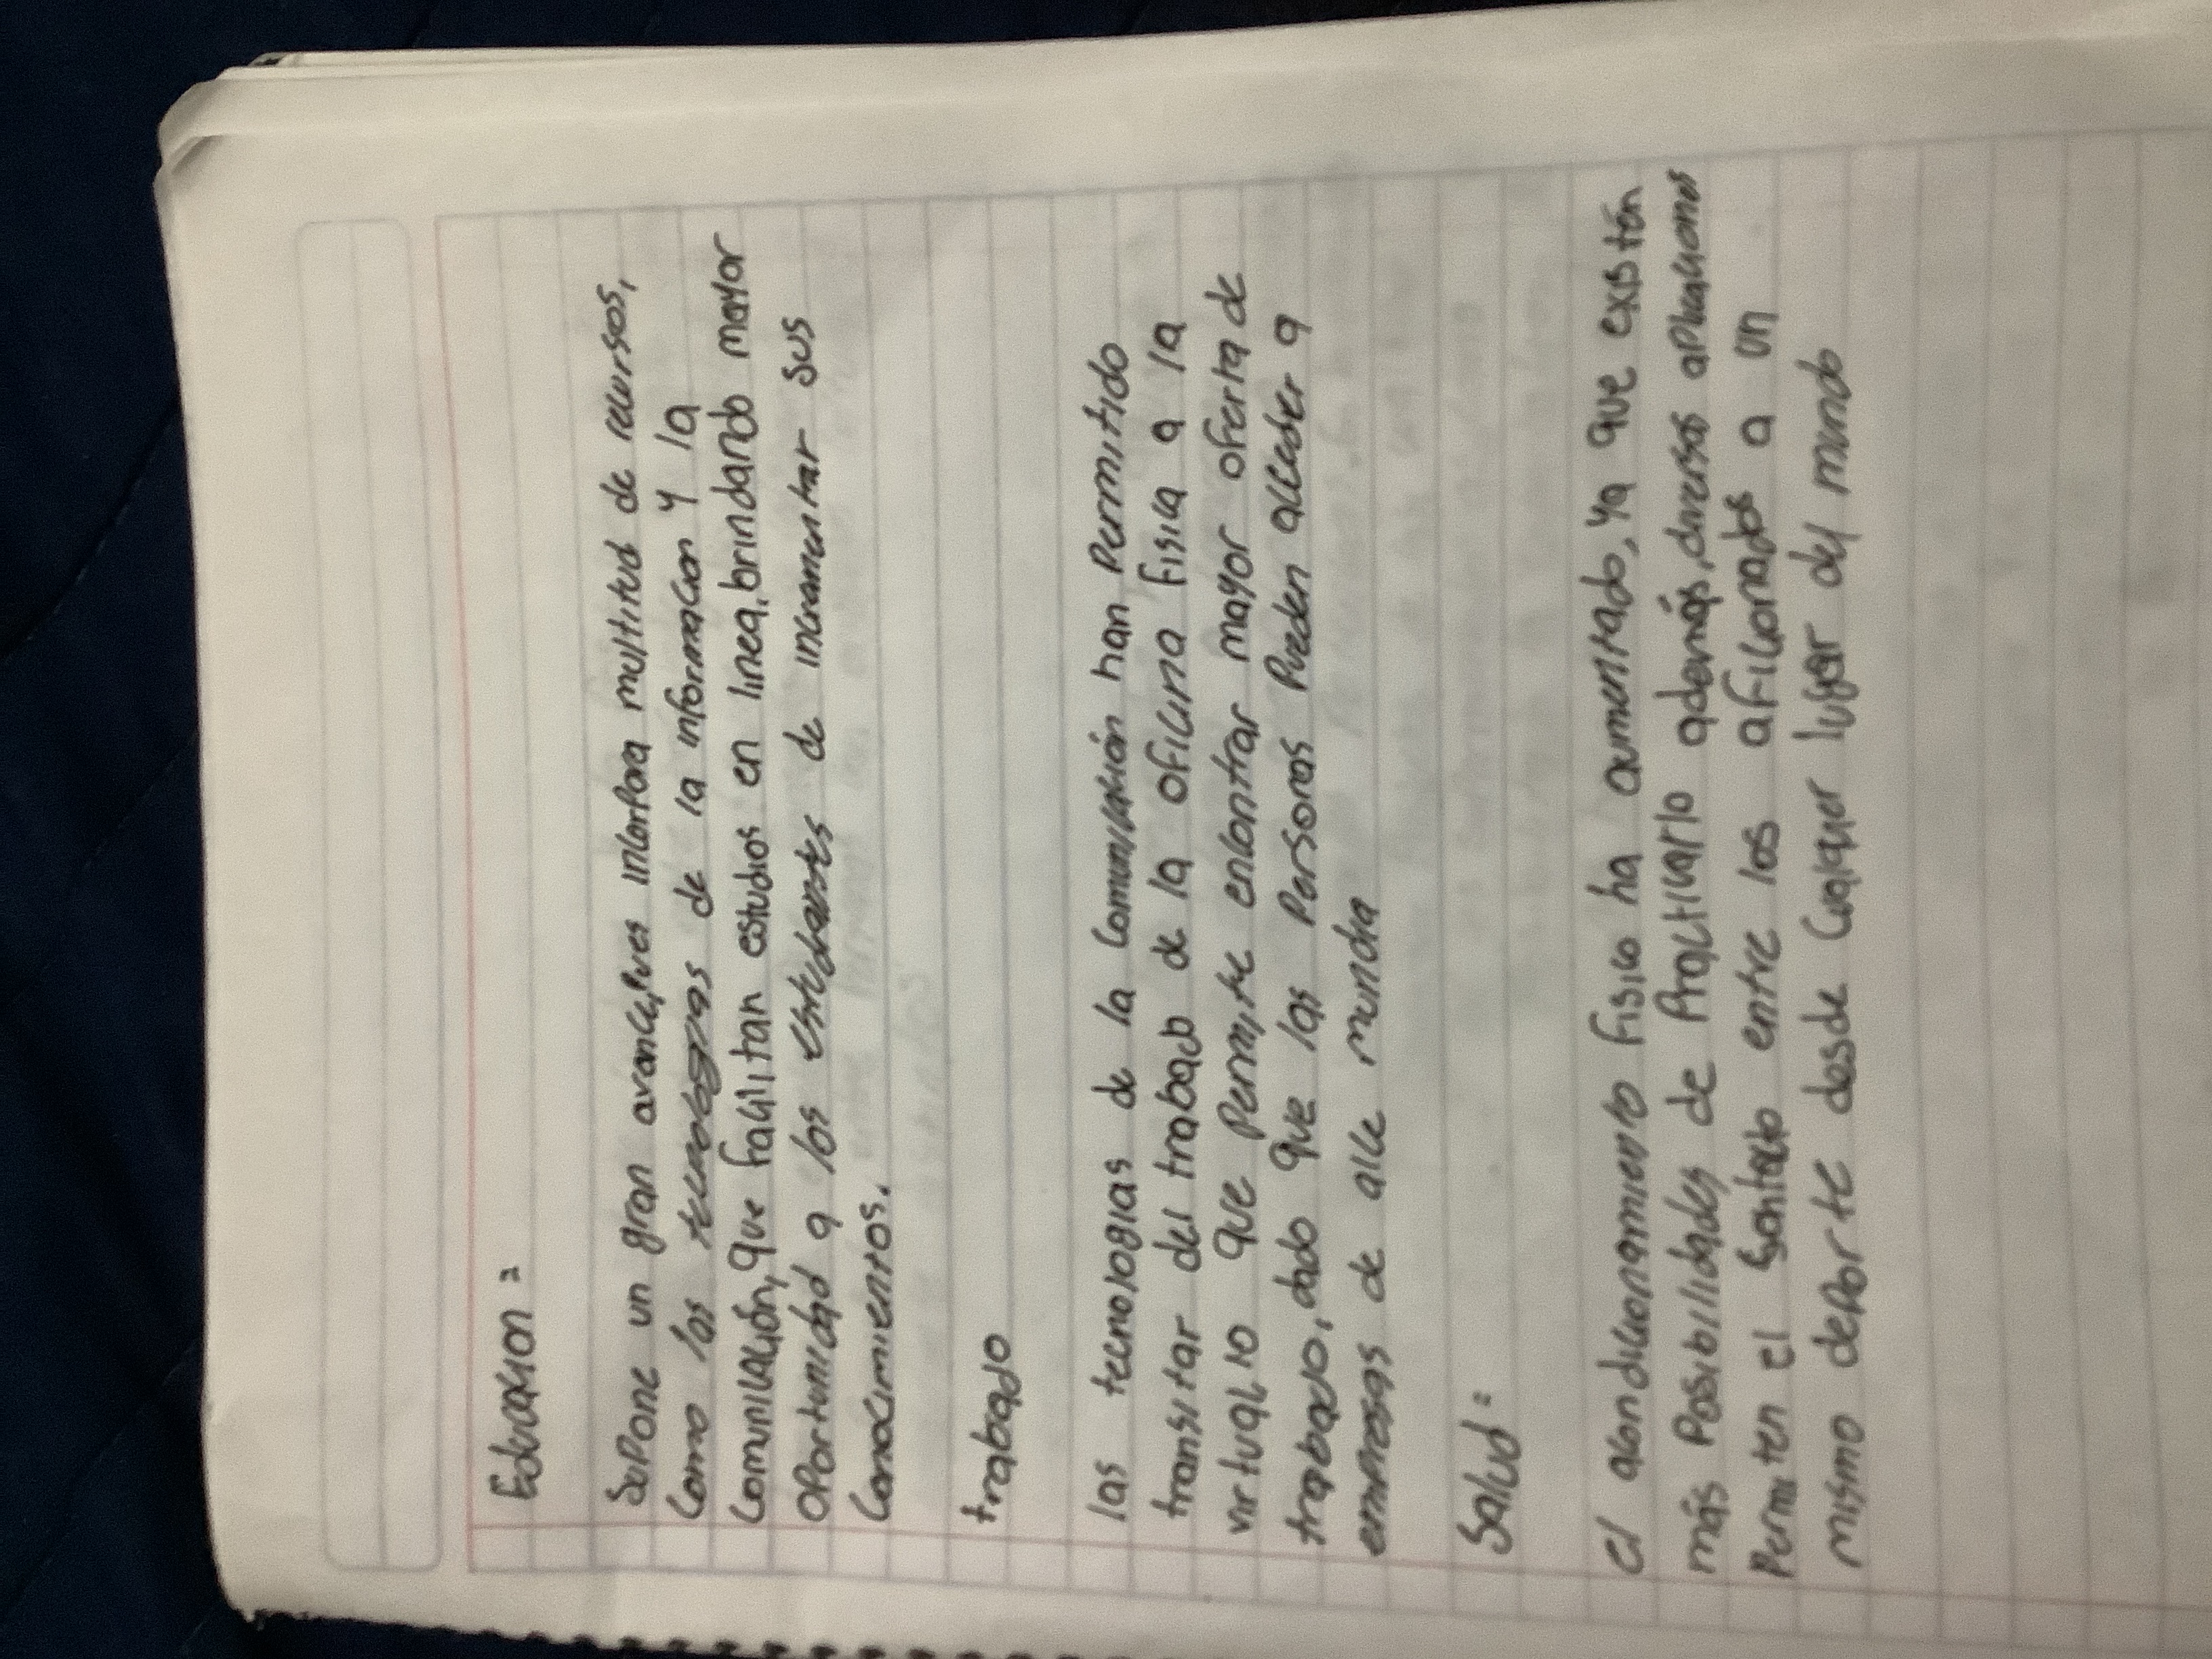 Educación:
Supone un gran avance, pues incorpora multitud de recursos,
como las tecnologias de la información y la
comunicación, que facilitan estudios en linea, brindando mayor
oportunidad a los estudiantes de incrementar sus
conocimientos.
trabado
las tecnologias de la comunicación han permitido
transitar del trabado de la oficina fisica a la
virtual, lo que permite encontrar mayor oferta de
trabado, dado que las personas pueden acceder a
empresas de alce mundia
Salud:
el acondicionamiento fisico ha aumentado, ya que existén
más posibilidades de practicarlo además, diversas aplicaciones
permiten el contacto entre los aficionados a un
mismo deporte desde cualquer lugar del mundo